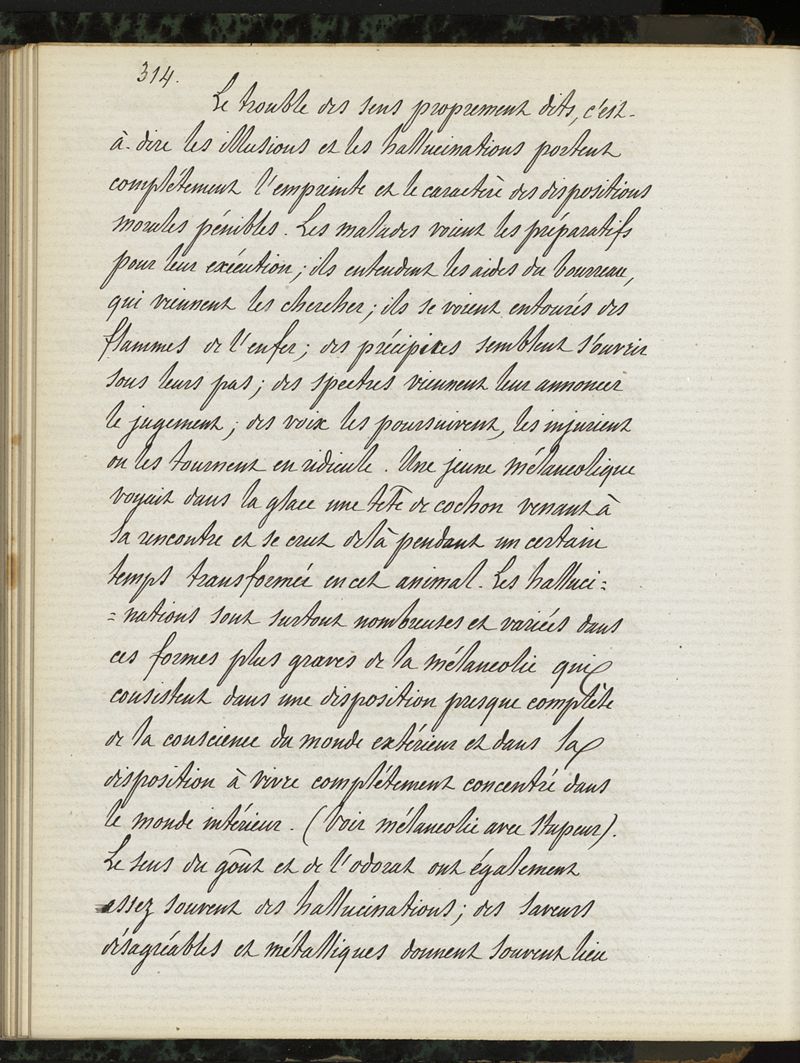 314.
Le trouble des sens proprement dits, c'est-
à-dire les illusions et les hallucinations portent
complétement l'empreinte et le caractère des dispositions
morales pénibles. Les malades voient les préparatifs
pour leur exécution; ils entendent les aides du bourreau,
qui viennent les chercher; ils se voient entourés des
flammes de l'enfer; des précipices semblent s'ouvrir
sous leurs pas; des spectres viennent leur annoncer
le jugement; des voix les poursuivent, les injurient
ou les tournent en ridicule. Une jeune mélancolique
voyait dans la glace une tête de cochon venant à
sa rencontre et se crut delà pendant un certain
temps transformée en cet animal. Les halluci=
=nations sont surtout nombreuses et variées dans
ces formes plus graves de la mélancolie qui
consistent dans une disposition presque complète
de la conscience du monde extérieur et dans la
disposition à vivre complétement concentré dans
le monde intérieur. (Voir mélancolie avec stupeur).
Le sens du goût et de l'odorat ont également
assez souvent des hallucinations; des saveurs
désagréables et métalliques donnent souvent lieu